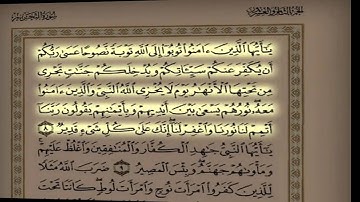 الجزء الثامن والعشرون
سورة التحريم
يَٰٓأَيُّهَا ٱلَّذِينَ ءَامَنُوا۟ تُوبُوٓا۟ إِلَى ٱللَّهِ تَوْبَةً نَّصُوحًا عَسَىٰ رَبُّكُمْ
أَن يُكَفِّرَ عَنكُمْ سَيِّـَٔاتِكُمْ وَيُدْخِلَكُمْ جَنَّٰتٍ تَجْرِى
مِن تَحْتِهَا ٱلْأَنْهَٰرُ يَوْمَ لَا يُخْزِى ٱللَّهُ ٱلنَّبِىَّ وَٱلَّذِينَ ءَامَنُوا۟
مَعَهُۥ نُورُهُمْ يَسْعَىٰ بَيْنَ أَيْدِيهِمْ وَبِأَيْمَٰنِهِمْ يَقُولُونَ رَبَّنَآ
أَتْمِمْ لَنَا نُورَنَا وَٱغْفِرْ لَنَآ إِنَّكَ عَلَىٰ كُلِّ شَىْءٍ قَدِيرٌ ٨
يَٰٓأَيُّهَا ٱلنَّبِىُّ جَٰهِدِ ٱلْكُفَّارَ وَٱلْمُنَٰفِقِينَ وَٱغْلُظْ عَلَيْهِمْ
وَمَأْوَىٰهُمْ جَهَنَّمُ وَبِئْسَ ٱلْمَصِيرُ ٩ ضَرَبَ ٱللَّهُ مَثَلًا
لِّلَّذِينَ كَفَرُوا۟ ٱمْرَأَتَ نُوحٍ وَٱمْرَأَتَ لُوطٍ كَانَتَا تَحْتَ